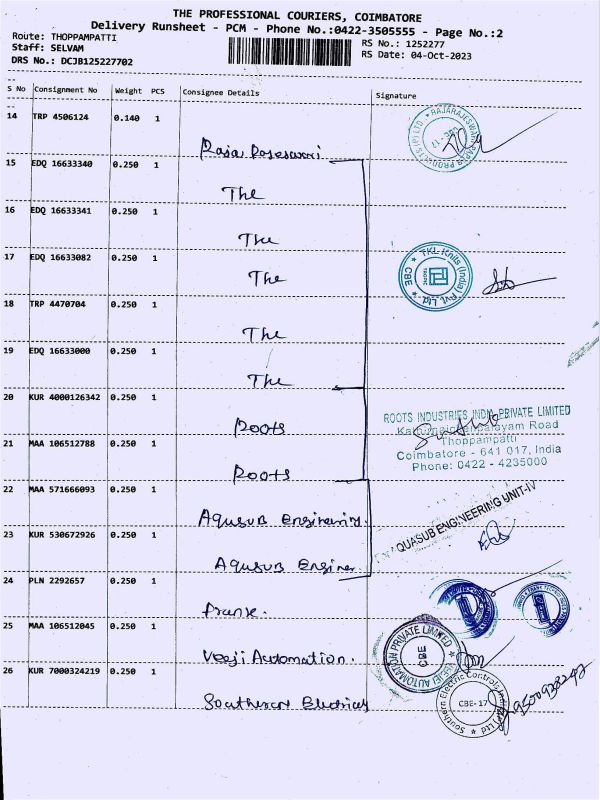 THE PROFESSIONAL COURIERS, COIMBATORE
Delivery Runsheet - PCM - Phone No.:0422-3505555 - Page No.:2
Route: THOPPAMPATTI
RS No.: 1252277
Staff: SELVAM
RS Date: 04-Oct-2023
DRS No.: DCJB125227702
S No Consignment No Weight PCS Consignee Details Signature
14 TRP 4506124 0.140 1
RAJARAJESWARI PAPER PRODUCTS (P) LTD. CBE-17
Raja Rajeswari
15 EDQ 16633340 0.250 1
The
16 EDQ 16633341 0.250 1
The
17 EDQ 16633082 0.250 1
The
TKL Knits (India) Pvt Ltd. CBE
18 TRP 4470704 0.250 1
The
19 EDQ 16633000 0.250 1
The
20 KUR 4000126342 0.250 1
Roots
ROOTS INDUSTRIES INDIA PRIVATE LIMITED
Road
Thoppampatti
Coimbatore - 641 017, India
Phone: 0422 - 4235000
21 MAA 106512788 0.250 1
Roots
22 MAA 571666093 0.250 1
Aqusub Engineering.
AQUASUB ENGINEERING UNIT-IV
23 KUR 530672926 0.250 1
Aqusub Enginer.
24 PLN 2292657 0.250 1
25 MAA 106512045 0.250 1
AUTOMATION PRIVATE LIMITED
Veeji Automation.
26 KUR 7000324219 0.250 1
Southern Electric Controls CBE-17
Southern Electrical